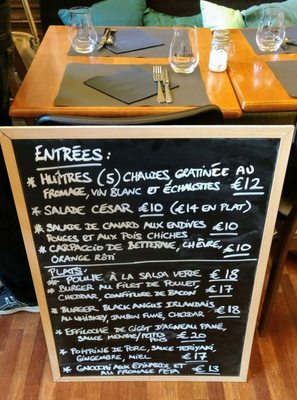 ENTRÉES :
* HUÎTRES (5) CHAUDES GRATINÉE AU
FROMAGE, VIN BLANC ET ÉCHALOTTES €12
* SALADE CÉSAR €10 (€14 EN PLAT)
* SALADE DE CANARD AUX ENDIVES €10
ROUGES ET AUX POIS CHICHES
* CARPACCIO DE BETTERAVE, CHÈVRE, €10
ORANGE RÔTI
PLATS:
* POULPE À LA SALSA VERDE €18
* BURGER AU FILET DE POULET €17
CHEDDAR, CONFITURE DE BACON
* BURGER BLACK ANGUS IRLANDAIS €18
AU WHISKEY, JAMBON FUMÉ, CHEDDAR
* EFFILOCHÉ DE GIGOT D'AGNEAU PANÉ,
SAUCE MENTHE/PETITS POIS €20
* POITRINE DE PORC, SAUCE TERIYAKI,
GINGEMBRE, MIEL €17
* GNOCCHI AUX ÉPINARDS ET
AU FROMAGE FETA €13